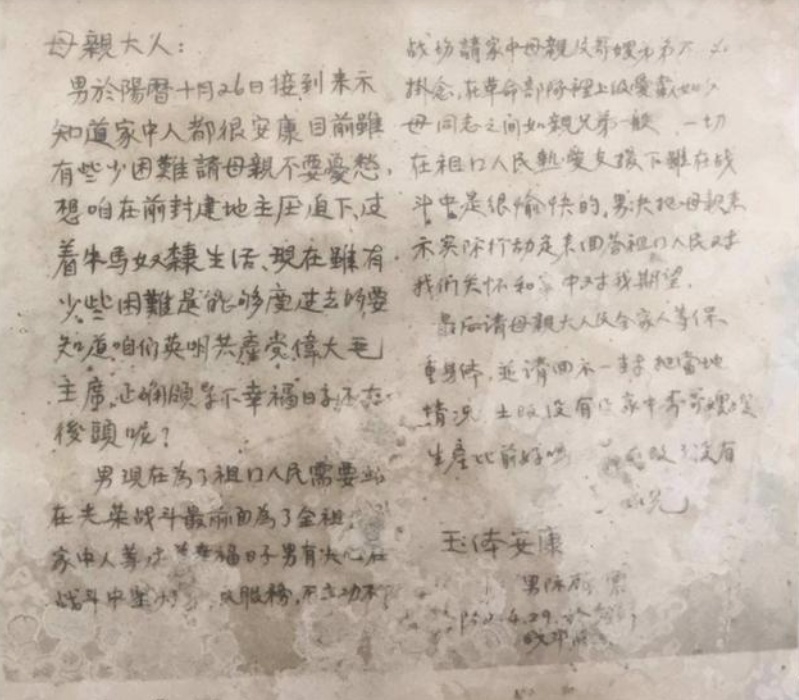 母親大人：
男於陽曆十月26日接到来示
知道家中人都很安康目前雖
有些少困難請母親不要憂愁，
想咱在前封建地主压迫下，过
着牛馬奴隸生活、現在雖有
少些困難是能够度过去的要
知道咱们英明共產党偉大毛
主席，正确領导下幸福日子还在
後頭呢？
男現在為了祖囗人民需要站
在光荣战斗最前面為了全祖
家中人等过幸福日子男有决心在
战斗中 服務，不立功不
战场請家中母親及哥嫂弟弟不必
掛念，在革命部队裡上级愛戴如父
母同志之间如親兄弟一般，一切
在祖囗人民熱愛支援下雖在战
斗中是很愉快的，男决把母親来
示实际行动定来回答祖囗人民对
我们关怀和家中对我期望。
最后请母親大人及全家人等保
重身体，並请回示一封把當地
情况 土改没有 家中哥哥嫂嫂
生產比前好 没有
祝
玉体安康
男陈
4.29.於